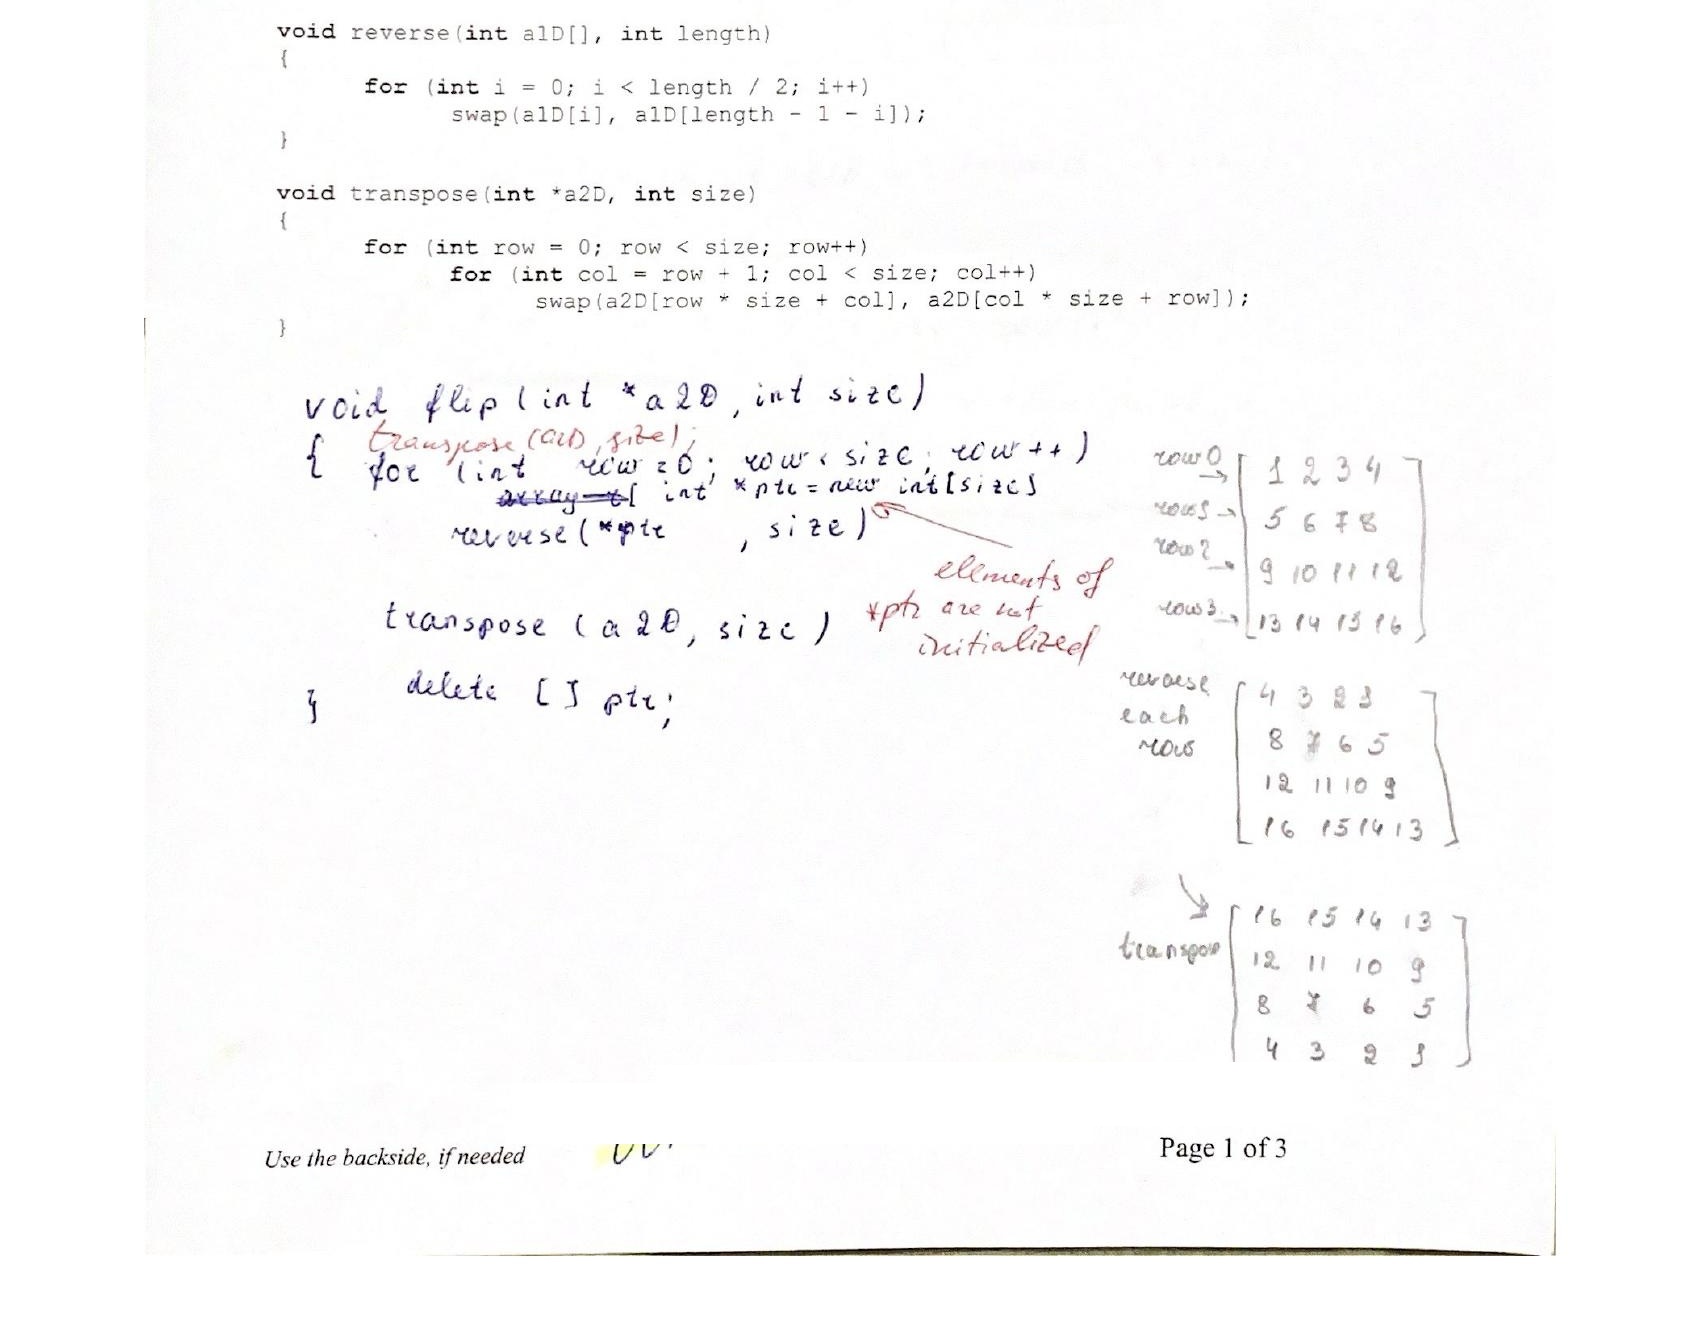 void reverse(int a1D[], int length)
{
for (int i = 0; i < length / 2; i++)
swap(a1D[i], a1D[length - 1 - i]);
}
void transpose(int *a2D, int size)
{
for (int row = 0; row < size; row++)
for (int col = row + 1; col < size; col++)
swap(a2D[row * size + col], a2D[col * size + row]);
}
void flip(int *a2D, int size)
transpose(a2D, size);
{ for (int row = 0; row < size; row++)
int *ptr = new int[size]
reverse(*ptr , size)
elements of
*ptr are not
initialized
transpose (a2D, size)
delete [] ptr;
}
row 0 → 1 2 3 4
row 1 → 5 6 7 8
row 2 → 9 10 11 12
row 3 → 13 14 15 16
reverse
each
row
4 3 2 1
8 7 6 5
12 11 10 9
16 15 14 13
transpose
16 15 14 13
12 11 10 9
8 7 6 5
4 3 2 1
Use the backside, if needed
Page 1 of 3